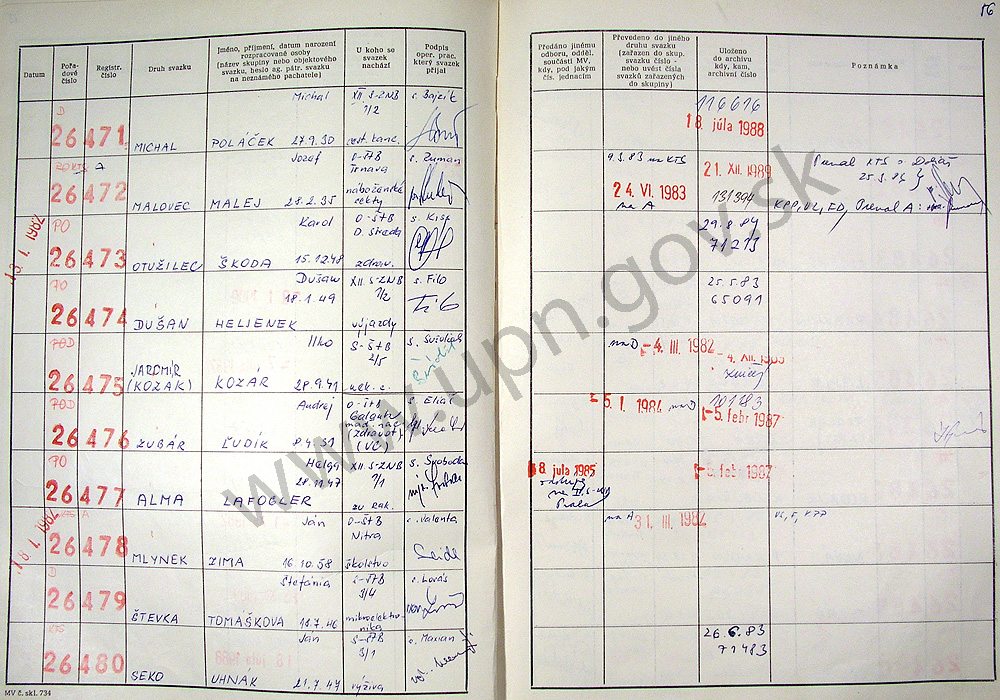 16
Datum
Pořa-
dové
číslo
Registr.
číslo
Druh svazku
Jméno, příjmení, datum narození
rozpracované osoby
(název skupiny nebo objektového
svazku, heslo ag. pátr. svazku
na neznámého pachatele)
U koho se
svazek
nachází
Podpis
oper. prac.
který svazek
přijal
Předáno jinému
odboru, odděl.
součásti MV,
kdy, pod jakým
čís. jednacím
Převedeno do jiného
druhu svazku
(zařazen do skup.
svazku číslo -
nebo uvést čísla
svazků zařazených
do skupiny)
Uloženo
do archivu
kdy, kam,
archivní číslo
Poznámka
D
26 471
MICHAL
Michal
POLÁČEK 27.9.30
XII. S-ZNB
1/2
cest. kanc.
s. Bajzik
116616
18. júla 1988
A
26 472
MALOVEC
Jozef
MALEJ 28.2.35
O-ŠTB
Trnava
náboženské
sekty
s. Zuman
9.3.83 na KTS
24. VI. 1983
na A
21. XII. 1989
131394
25.3.84
13.1.1982
PO
26 473
OTUŽILEC
Karol
ŠKODA 15.12.48
O-ŠtB
D. Streda
zdrav.
29.8.84
71213
PO
26 474
DUŠAN
Dušan
18.1.49
HELIENEK
XII. S-ZNB
1/2
výjazdy
s. Filo
25.5.83
65091
POD
26 475
JAROMÍR
(KOZÁK)
Ilko
KOZÁR 28.9.41
S-ŠTB
2/5
na D
-4. III. 1982
POD
26 476
ZUBÁR
Andrej
ĽUDÍK 8.4.51
O-ŠTB
Galanta
(zdravot)
(VC)
s. Eliáš
5. I. 1984 na D
101183
-5. febr 1987
PO
26 477
ALMA
Helga
28.12.47
LAFOGLER
XII. S-ZNB
1/1
zv Rak.
s. Svoboda
8. júla 1985
-5. febr 1987
18.1.1982
KTS A
26 478
MLYNEK
Ján
ZIMA 16.10.58
O-ŠtB
Nitra
školstvo
s. Valenta
na A
31. III. 1982
D
26 479
ŠTEVKA
Štefánia
TOMÁŠKOVA 18.7.46
S-ŠTB
3/4
mikroelektro-
nika
s. Lovás
KTS
26 480
SEKO
Ján
UHNÁK 21.7.47
S-ŠTB
3/1
výživa
s. Marian
26.6.83
71483
MV č. skl. 734
www.upn.gov.sk